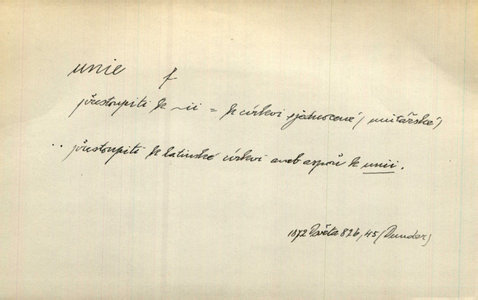 unie f
přestoupiti k ~ii = k církvi sjednocené, unitářské)
.. přestoupiti k latinské církvi aneb aspoň k unii.
1872 Světoz 826, 45 (Dunder)